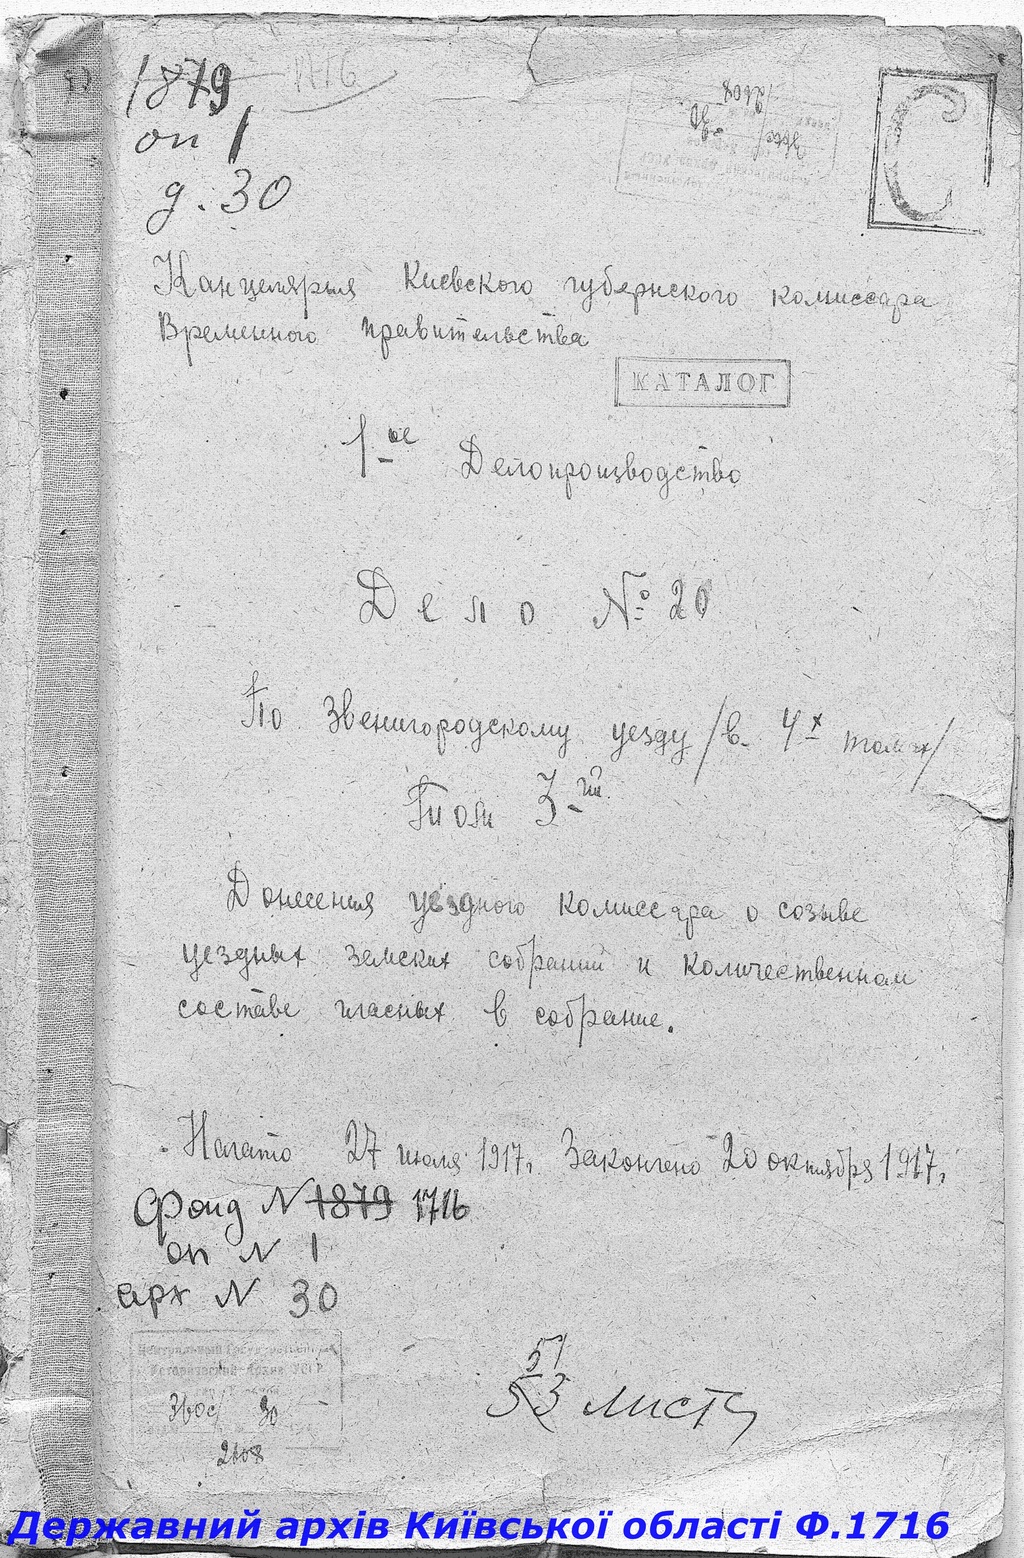 1879 1716
оп 1
д. 30
С
Канцелярия Киевского губернского комиссара
Временного правительства
КАТАЛОГ
1-ое Делопроизводство
Дело № 20
По Звенигородскому уезду /в 4х томах/
Том 3-ий
Донесения уездного комиссара о созыве
уездных земских собраний и количественном
составе гласных в собрание.
Начато 27 июля 1917г. Закончено 20 октября 1917г.
Фонд N 1879 1716
оп N 1
арх N 30
Центральный Государственный
Исторический Архив УССР
30
2608
51
53 листа
Державний архів Київської області Ф.1716